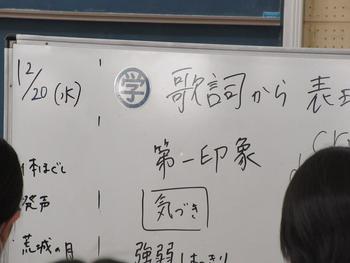 12/20(水)
学 歌詞から 表
第一印象
体ほぐし
発声
気づき
荒城の月
強弱はっきり